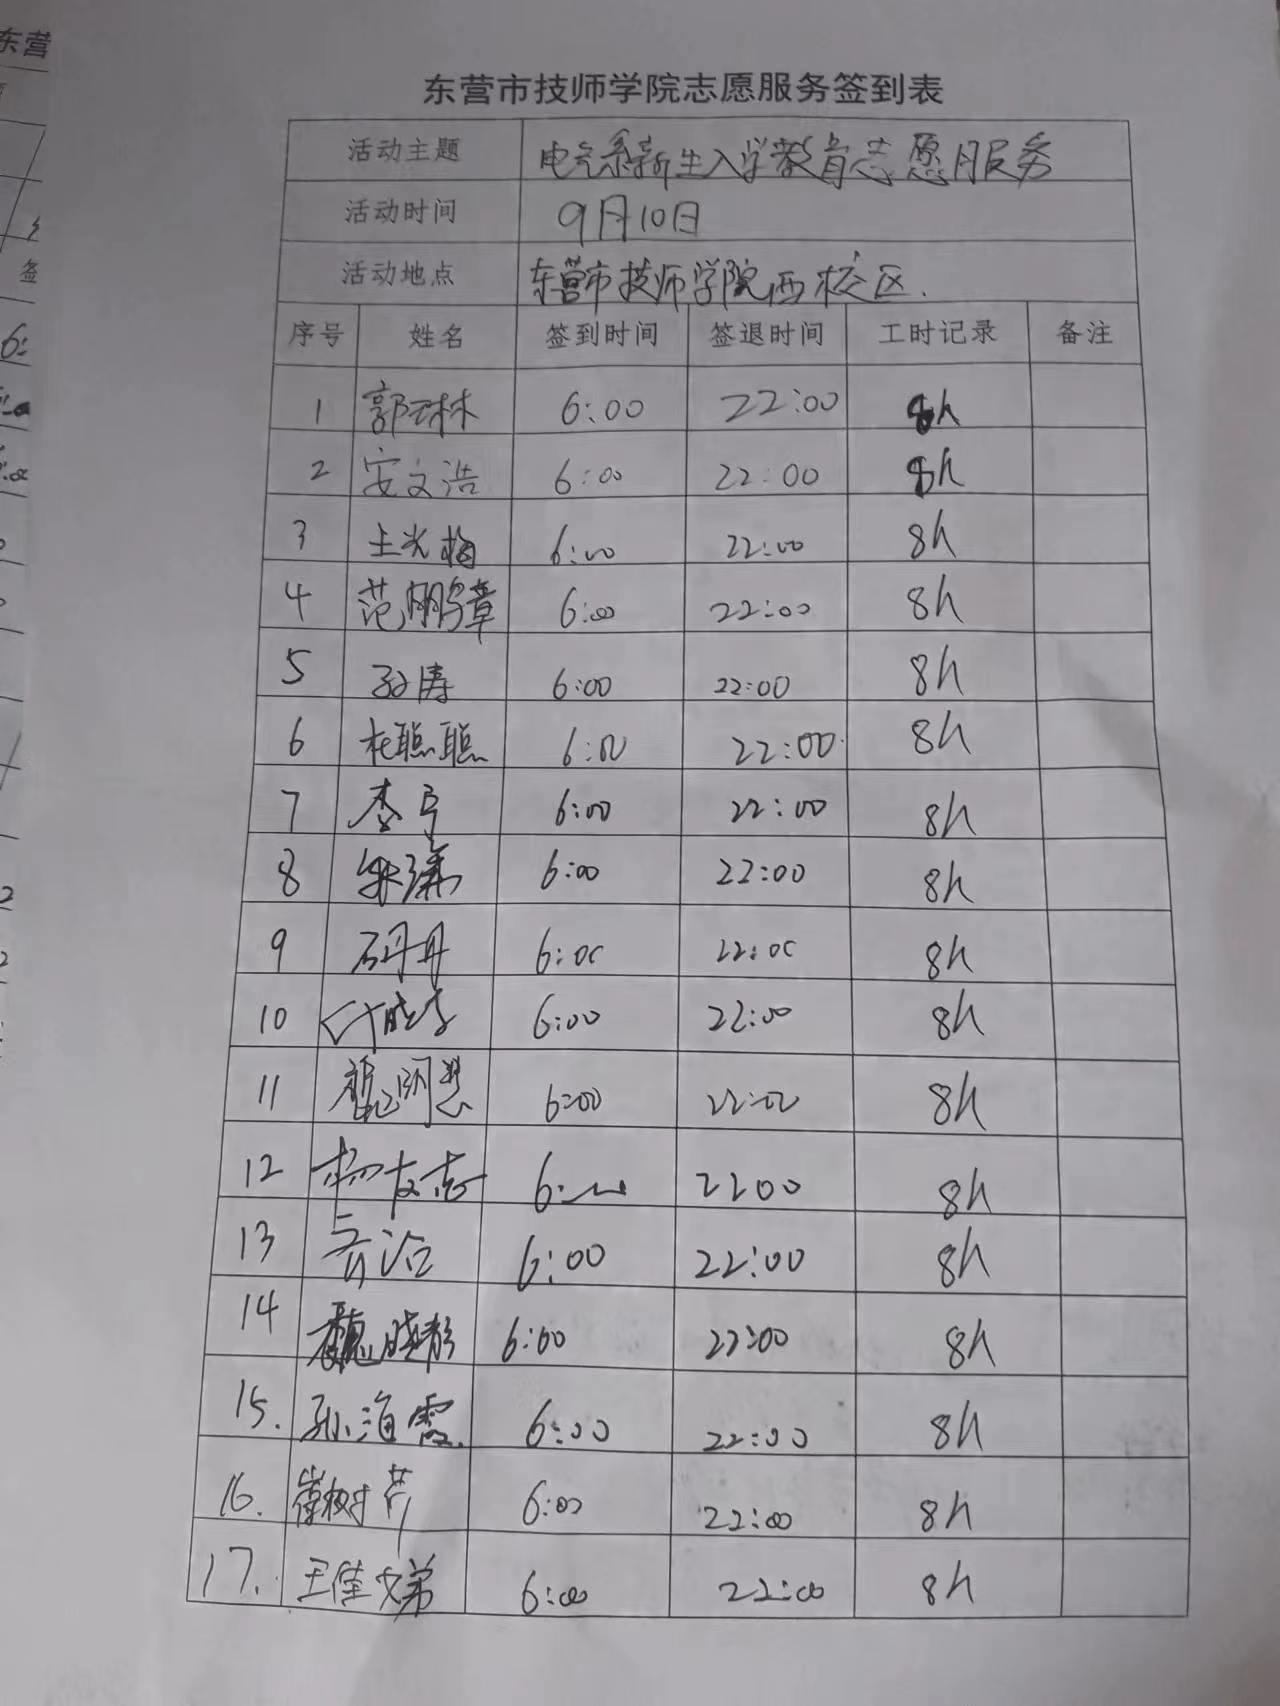 东营
东营市技师学院志愿服务签到表
活动主题 电气系新生入学教育志愿服务
活动时间 9月10日
活动地点 东营市技师学院西校区.
序号 姓名 签到时间 签退时间 工时记录 备注
1 郭林 6:00 22:00 8h
2 安文浩 6:00 22:00 8h
3 王光梅 6:00 22:00 8h
4 范鹏章 6:00 22:00 8h
5 孙涛 6:00 22:00 8h
6 杜聪聪 6:00 22:00 8h
7 李宁 6:00 22:00 8h
8 6:00 22:00 8h
9 石丹丹 6:00 22:00 8h
10 6:00 22:00 8h
11 6:00 22:00 8h
12 杨友志 6: 2200 8h
13 6:00 22:00 8h
14 魏晓彤 6:00 22:00 8h
15. 孙海霞. 6:00 22:00 8h
16. 崔树芹 6:00 22:00 8h
17. 王佳娣 6:00 22:00 8h